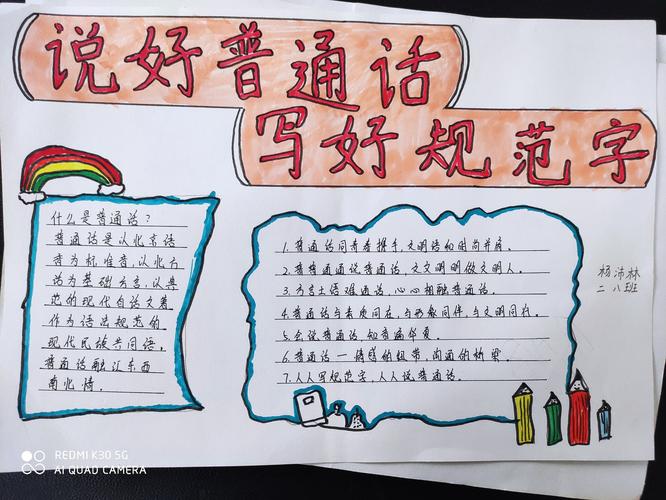 说好普通话
写好规范字
什么是普通话？
普通话是以北京语
音为标准音，以北方
话为基础方言，以典
范的现代白话文著
作为语法规范的
现代民族共同语。
普通话融江东西
南北情。
1.普通话同青春携手，文明语和时尚并肩。
2.普普通通说普通话，文文明明做文明人。
3.方言土语难通话，心心相融普通话。
4.普通话与素质同在，与形象同伴，与文明同行。
5.会说普通话，知音遍华夏。
6.普通话－情感的纽带，沟通的桥梁。
7.人人写规范字，人人说普通话。
杨沛林
二八班
REDMI K30 5G
AI QUAD CAMERA